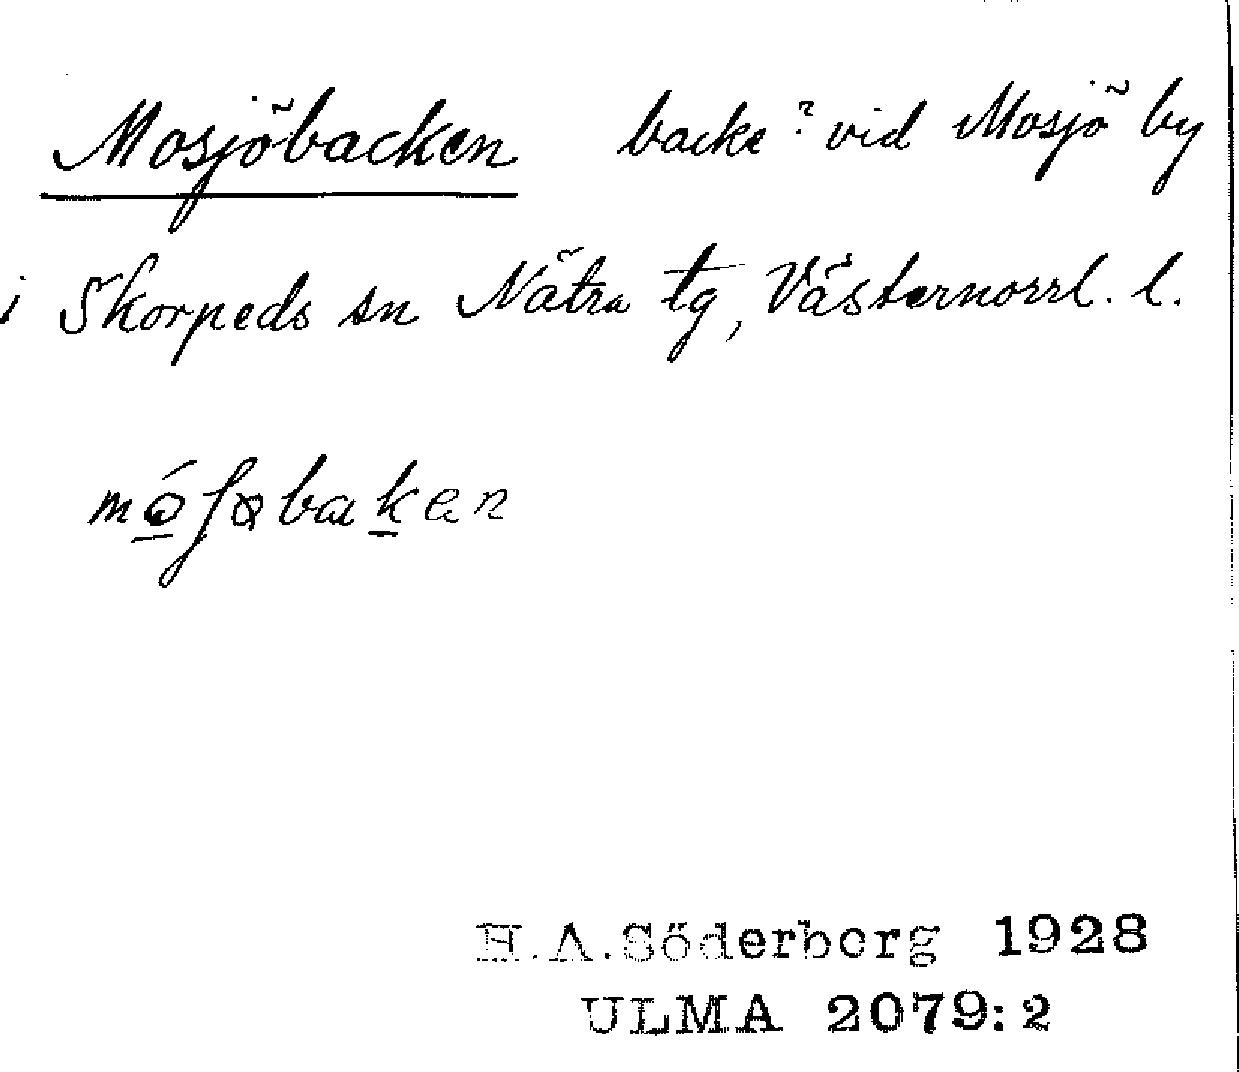 Mosjöbacken backe? vid Mosjö by
i Skorpeds sn Nätra tg, Västernorrl. l.
mó̲ʃøbak̲en
H.A.Söderberg 1928
ULMA 2079:2